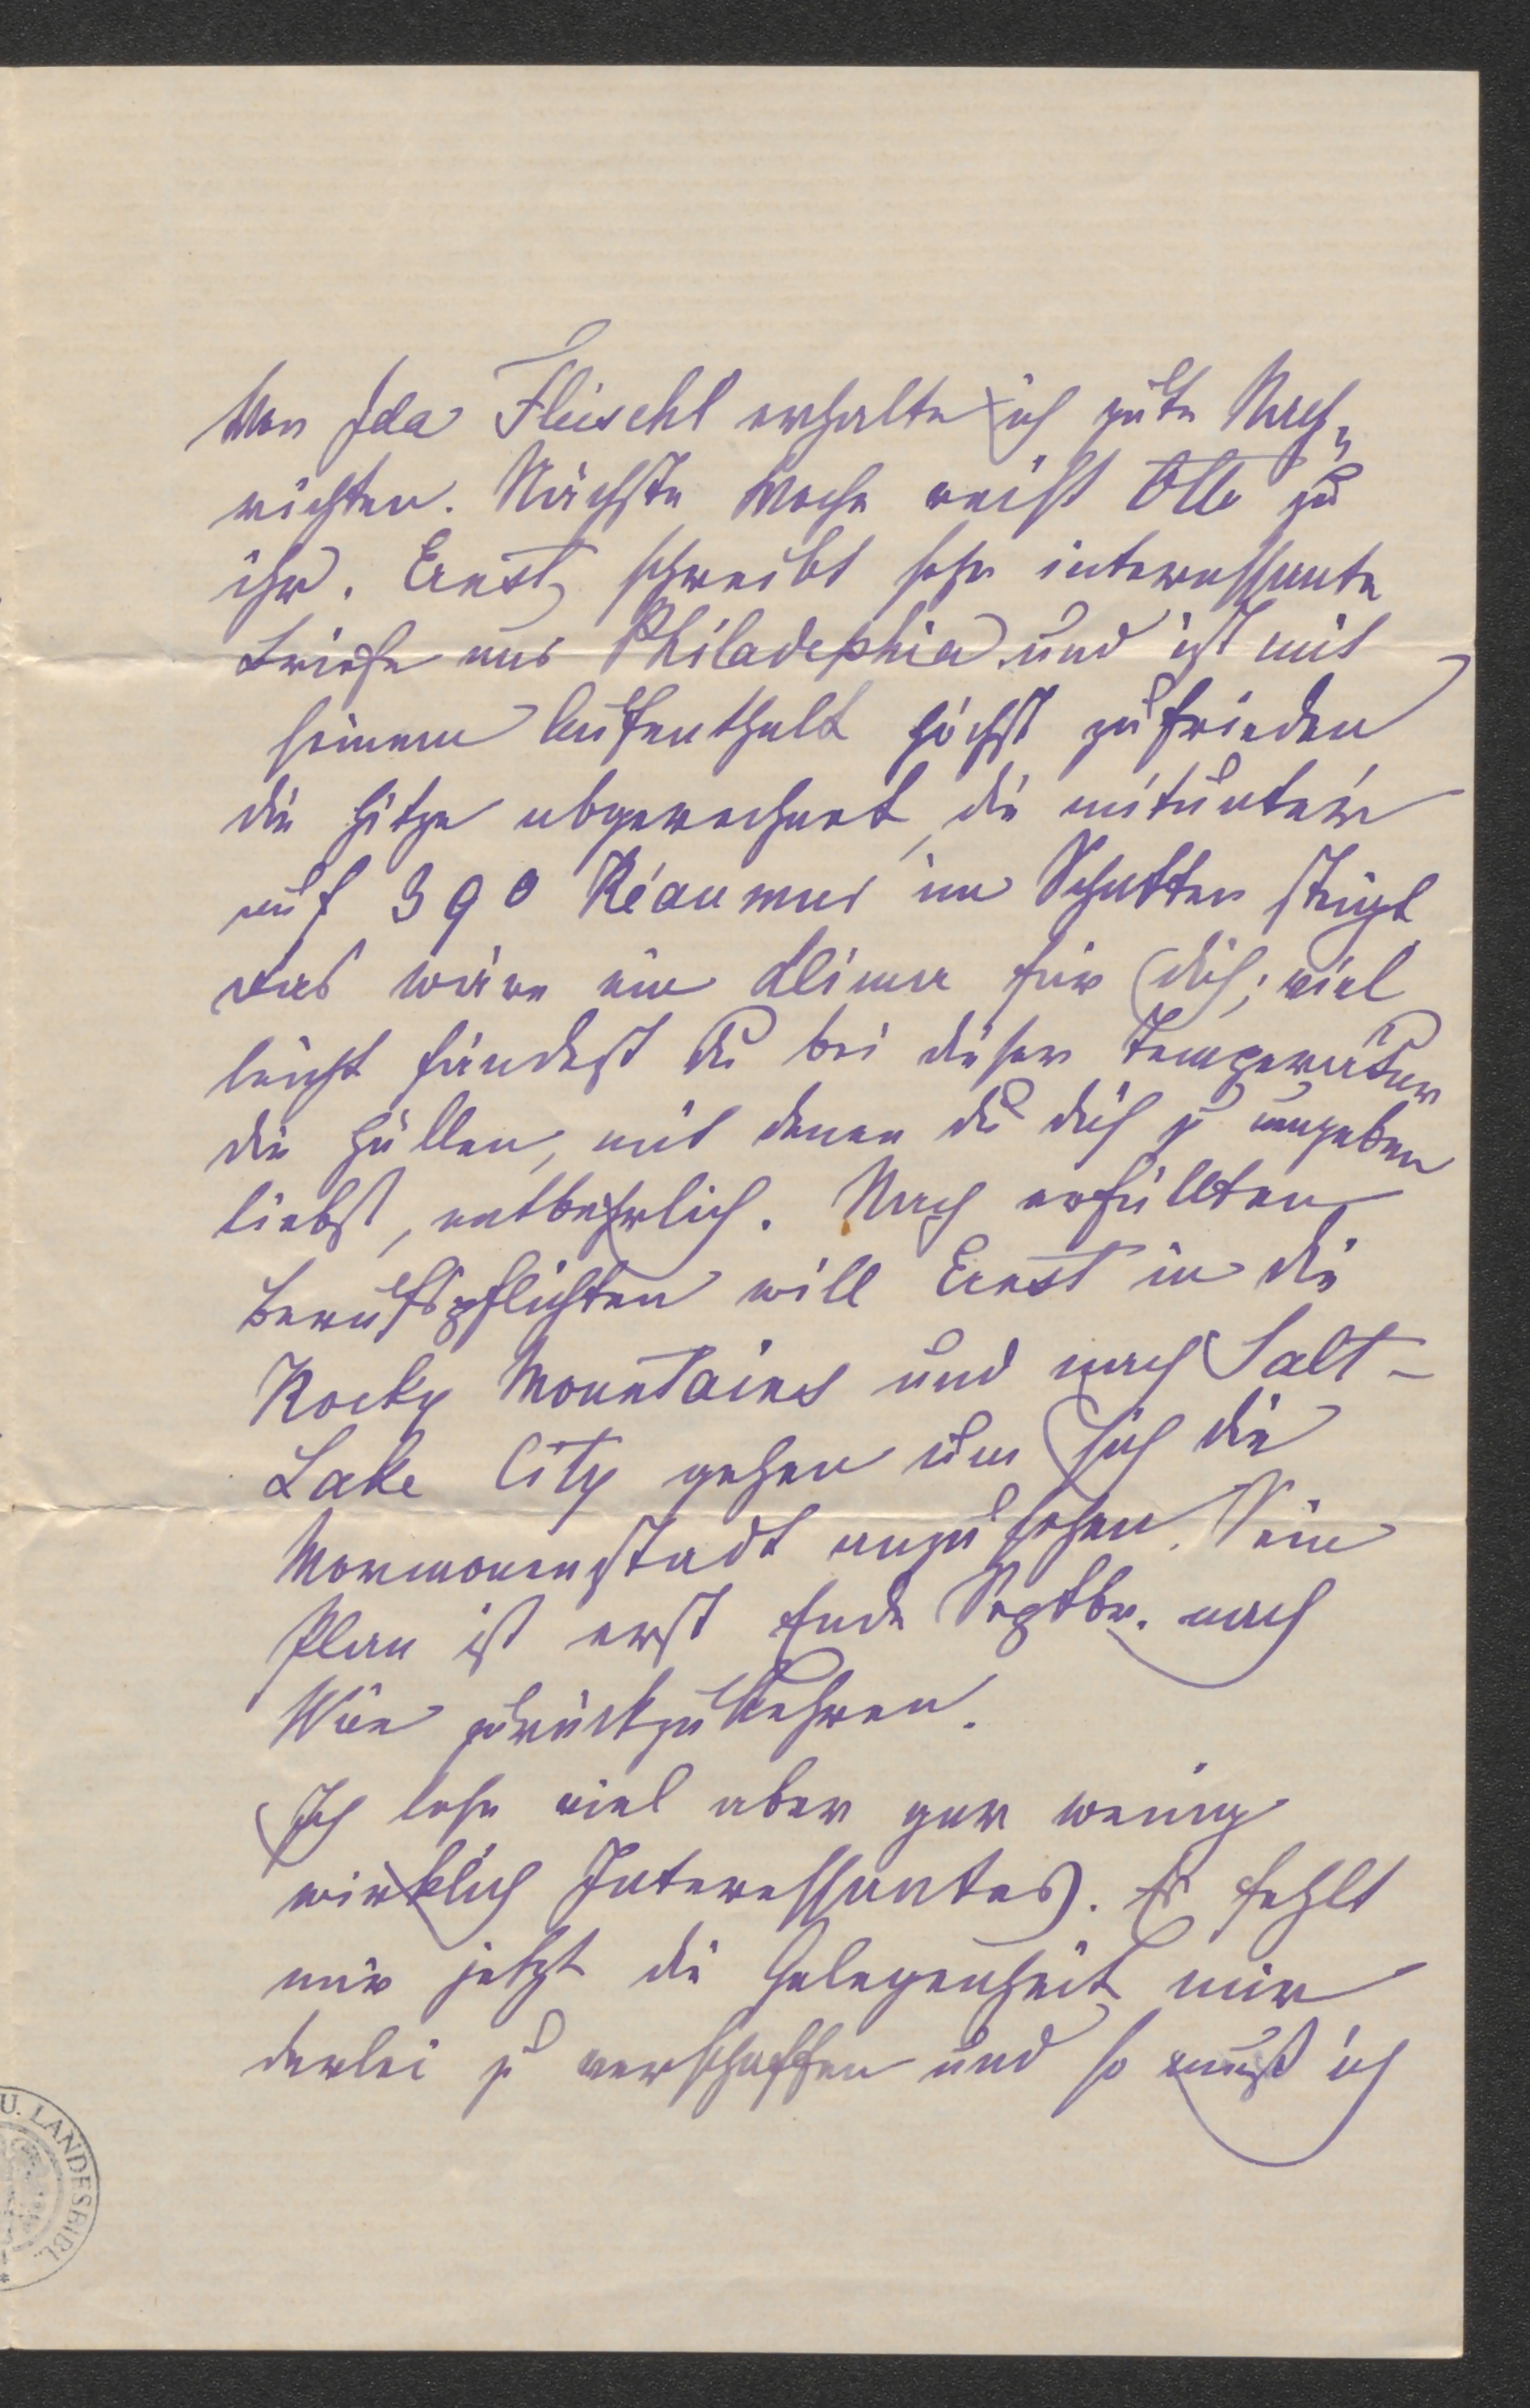 Von Ida Fleischl erhalte ich gute Nach-
richten. Nächste Woche reist Otto zu
ihr. Ernst schreibt sehr interessante
Briefe aus Philadephia und ist mit
seinem Aufenthalt höchst zufrieden
die Hitze abgerechnet, die mitunter
auf 39° Réaumur im Schatten steigt
das wäre ein Klima für dich; viel
leicht fändest du bei dieser Temperatur
die Hüllen, mit denen du dich zu umgeben
liebst, entbehrlich. Nach erfüllten
Berufspflichten will Ernst in die
Rocky Mountains und nach Salt-
Lake City gehen um sich die
Mormonenstadt anzusehen. Sein
Plan ist erst Ende Septbr. nach
Wien zurückzukehren.
Ich lese viel aber gar wenig
wirklich Interessantes. Es fehlt
mir jetzt die Gelegenheit mir
derlei zu verschaffen und so muß ich
U. LANDESBIBL.